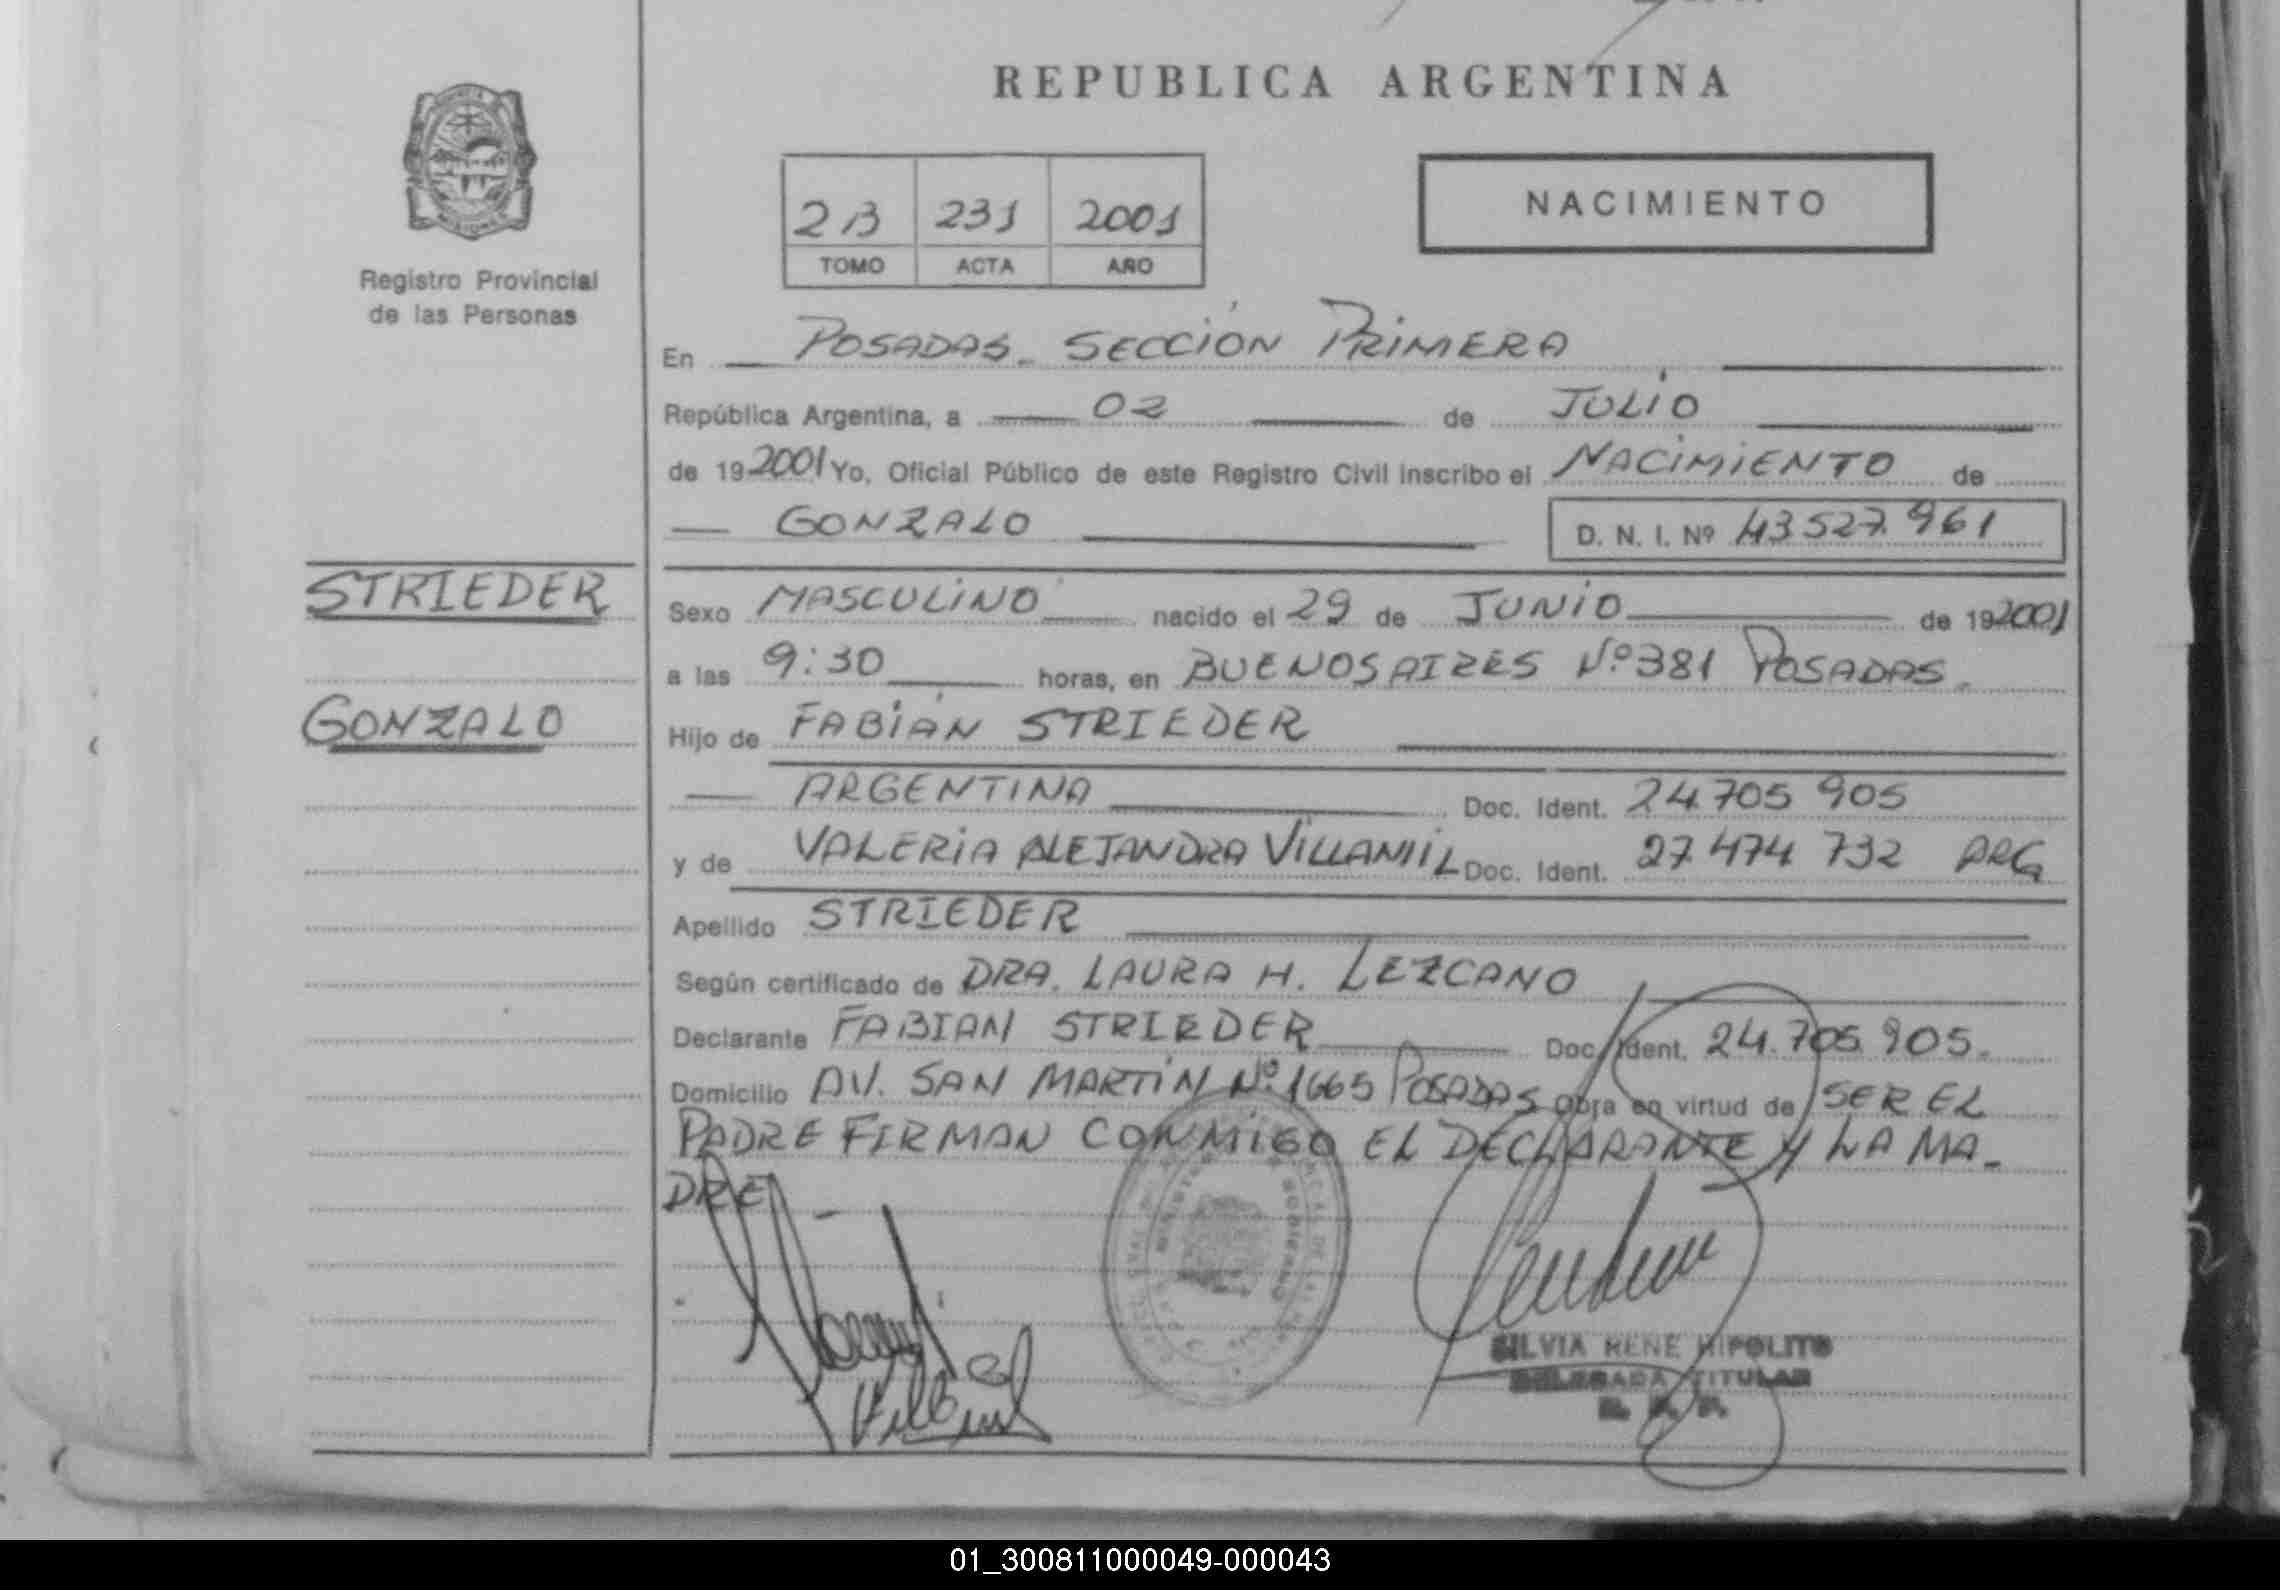 REPUBLICA ARGENTINA
2B 231 2001
TOMO ACTA AÑO
NACIMIENTO
Registro Provincial
de las Personas
En POSADAS. SECCIÓN PRIMERA
República Argentina, a 02 de JULIO
de 19 2001 Yo, Oficial Público de este Registro Civil inscribo el NACIMIENTO de
GONZALO D. N. I. Nº 43.527.961
STRIEDER
GONZALO
Sexo MASCULINO nacido el 29 de JUNIO de 19 2001
a las 9:30 horas, en BUENOS AIRES Nº 381 POSADAS.
Hijo de FABIÁN STRIEDER
ARGENTINA Doc. Ident. 24.705 905
y de VALERIA ALEJANDRA VILLAMIL Doc. Ident. 27.474 732 ARG
Apellido STRIEDER
Según certificado de DRA. LAURA H. LEZCANO
Declarante FABIAN STRIEDER Doc. Ident. 24.705.905.
Domicilio AV. SAN MARTÍN Nº 1665 POSADAS Obra en virtud de SER EL
PADRE FIRMAN CONMIGO EL DECLARANTE Y LA MA-
DRE -
SILVIA RENE HIPOLITO
DELEGADA TITULAR
R. P. P.
01_300811000049-000043